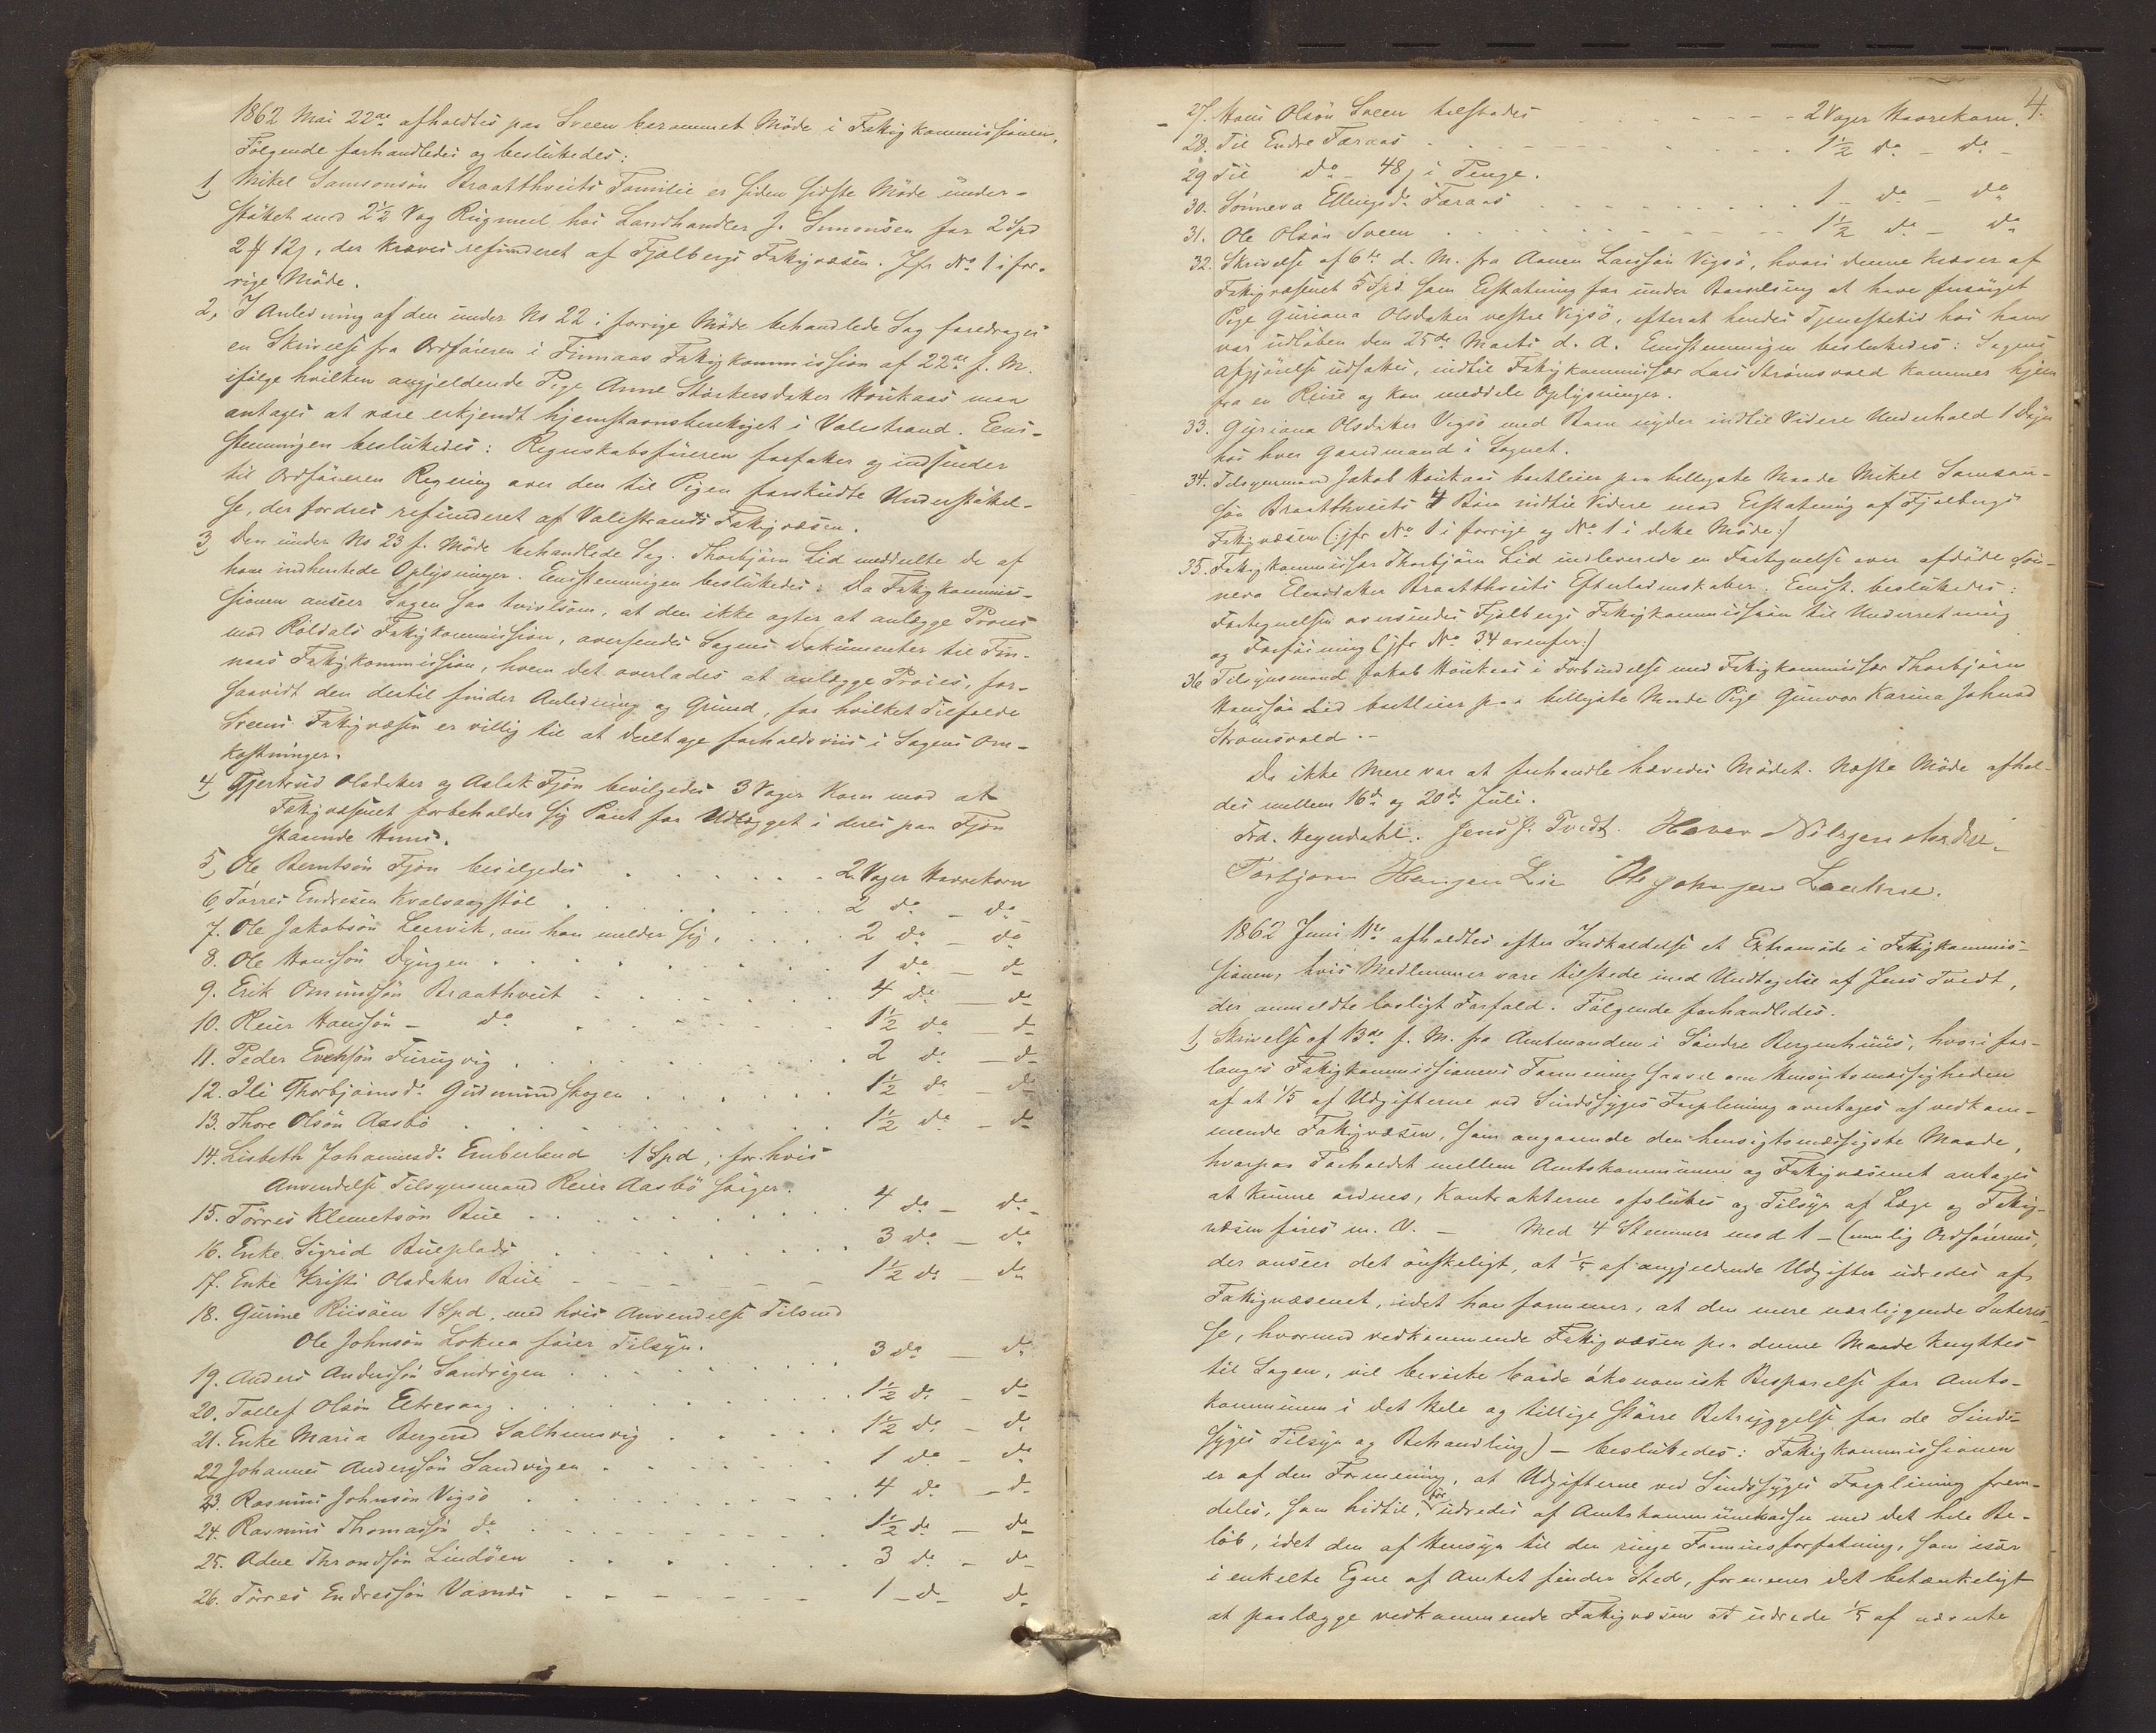 1862 Mai 22de afholdtes paa Sveen berammet Möde i Fattigkommissionen,
Fölgende forhandledes og beslutedes:
1) Mikel Samsonsön Braatthveits Familie er siden sidste Möde under-
stöttet med 2½ Vog Rugmeel hos Landhandler J. Simonsen for 2 Spd
2 # 12 s, der kræves refunderet af Fjelbergs Fattigvæsen. Jfr No 1 i for-
rige Möde.
2, I Anledning af den under No 22 i forrige Möde behandlede Sag foredroges
en Skrivelse fra Ordföreren i Finnaas Fattigkommission af 22de f. M.
ifölge hvilken angjeldende Pige Anne Störkersdatter Houkaas maa
antages at være erkjendt hjemstavnsberettiget i Valestrand. Eens-
stemmigen beslutedes: Regnskabsföreren forfatter og indsender
til Ordföreren Regning over den til Pigen forskudte Understöttel-
se, der fordres refunderet af Valestrands Fattigvæsen.
3, Den under No 23 f. Möde behandlede Sag. Thorbjörn Lid meddeelte de af
ham indhentede Oplysninger. Eensstemmigen beslutedes: Da Fattigkommis-
sionen anseer Sagen saa tvivlsom, at den ikke agter at anlægge Proces
mod Röldals Fattigkommission, oversendes Sagens Dokumenter til Fin-
naas Fattigkommission, hvem det overlades at anlægge Proces, for-
saavidt den dertil finder Anledning og Grund, for hvilket Tilfælde
Sveens Fattigvæsen er villig til at deeltage forholdsviis i Sagens Om-
kostninger.
4, Gjertrud Olsdatter og Aslak Fjön bevilgedes 3 Voger Korn mod at
Fattigvæsenet forbeholder sig Pant for Udlægget i deres paa Fjön
staaende Huus.
5, Ole Berntsön Fjön bevilgedes . . . . . . 2 Voger Havrekorn
6, Törres Endresen Kvalvaagstöl . . . . . . 2 do - do -
7. Ole Jakobsön Leervik, om han melder sig, . . . . 2 do - do
8. Ole Hansön Dyngen . . . . . . . . 1 do - do
9. Erik Omundsön Braathveit . . . . . . . 4 do - do
10. Reier Hansön - do . . . . . . . 1½ do - do
11. Peder Evensön Furugvig . . . . . . . . 2 do - do
12. Ili Thorbjörnsd. Gudmundskogen . . . . . . 1½ do - do
13. Thore Olsön Aasbö . . . . . . . . 1½ do - do
14. Lisbeth Johannesd. Emberland 1 Spd, for hvis
Anvendelse Tilsynsmand Reier Aasbö sörger.
15. Törres Klemetsön Bue . . . . . . . . 4 do - do -
16. Enke Sigrid Bueplads . . . . . . . . 3 do - do
17. Enke Kristi Olsdatter Bue - - - - - - - 1½ do - do
18. Gurine Riisöen 1 Spd, med hvis Anvendelse Tilsmd
Ole Johnsön Lokna förer Tilsyn.
19. Anders Andersön Sandvigen . . . . . . . 3 do - do
20. Tollef Olsön Eltrevaag . . . . . . . . 1½ do - do
21. Enke Maria Bergesd Salhumsvig . . . . . 1½ do - do
22 Johannes Andersön Sandvigen . . . . . . . 1 do - do
23. Rasmus Johnsön Vigsö . . . . . . . . 4 do - do
24. Rasmus Thomassön do . . . . . . . . 1½ do - do
25. Adne Throndsön Lindöen . . . . . . . 3 do - do
26. Törres Endresön Vasnæs - - - - - - - 1 - do - do
4.
27. Hans Olsön Sveen tilstodes - - - - - - 2 Voger Havrekorn.
28. Til Endre Færaas . - - - - . . . . . 1½ do - do -
29 Til do - 48 s i Penge.
30. Sönneva Ellingsd. Færaas . . . . . . . . 1 - do - do
31. Ole Olsön Sveen . . . . . . . . . 1½ do - do
32. Skrivelse af 6te d. M. fra Aamen Larssön Vigsö, hvori denne kræver af
Fattigvæsenet 5 Spd som Erstatning for under Barselseng at have forsörget
Pige Guriana Olsdatter vestre Vigsö, efterat hendes Tjenestetid hos ham
var udlöben den 25de Marts d. A. Eensstemmigen beslutedes: Sagens
Afgjörelse udsættes, indtil Fattigkommissær Lars Strömsvold kommer hjem
fra en Reise og kan meddele Oplysninger.
33. Guriana Olsdatter Vigsö med Barn nyder indtil Videre Underhold 1 Dögn
hos hver Gaardmand i Sognet.
34. Tilsynsmand Jakob Houkaas bortleier paa billigste Maade Mikel Samson-
sön Braatthveits 4 Börn indtil Videre mod Erstatning af Fjelbergs
Fattigvæsen (:jfr No 1 i forrige og No 1 i dette Möde:)
35. Fattigkommissær Thorbjörn Lid indleverede en Fortegnelse over afdöde Sön-
neva Elendatter Braatthveits Efterladenskaber. Eenst. beslutedes:
Fortegnelsen oversendes Fjelbergs Fattigkommission til Underretning
og Forföining (:jfr No 34 ovenfor:)
36 Tilsynsmand Jakob Houkaas i Forbindelse med Fattigkommissær Thorbjörn
Hansön Lid bortleier paa billigste Maade Pige Gunvor Karina Johnsd
Strömsvold. -
Da ikke Mere var at forhandle hævedes Mödet. Næste Möde afhol-
des mellem 16de og 20de Juli.
Frd. Heyerdahl. Jens J. Tvedt. Haver Nilsgen
Torbjørn Hansen Lie Ole Johnsen
1862 Juni 11te afholdtes efter Indkaldelse et Extramöde i Fattigkommis-
sionen, hvis Medlemmer vare tilstede med Undtagelse af Jens Tvedt,
der anmeldte lovligt Forfald. Fölgende forhandledes.
1, Skrivelse af 13de f. M. fra Amtmanden i Söndre Bergenhuus, hvori for-
langes Fattigkommissionens Formening saavel om Hensigtsmæssigheden
af at 1/5 af Udgifterne ved Sindssyges Forpleining overtages af vedkom-
mende Fattigvæsen, som angaaende den hensigtsmæssigste Maade,
hvorpaa Forholdet mellem Amtskommunen og Fattigvæsenet antages
at kunne ordnes, Kontrakterne afsluttes og Tilsyn af Læge og Fattig-
væsen föres m. V. - Med 4 Stemmer mod 1 - (nemlig Ordförerens,
der anseer det önskeligt, at 1/5 af angjeldende Udgifter udredes af
Fattigvæsenet, idet han formener, at den mere nærliggende Interes-
se, hvormed vedkommende Fattigvæsen paa denne Maade knyttes
til Sagen, vil bevirke baade ökonomisk Besparelse for Amts-
kommunen i det Hele og tillige större Betryggelse for de Sinds-
syges Tilsyn og Behandling) - beslutedes: Fattigkommissionen
er af den Formening, at Udgifterne ved Sindssyges Forpleining frem-
deles, som hidtil, bör udredes af Amtskommunekassen med det hele Be-
löb, idet den af Hensyn til den ringe Formuesforfatning, som især
i enkelte Egne af Amtet finder Sted, formener det betænkeligt
at paalægge vedkommende Fattigvæsen at udrede 1/5 af nævnte